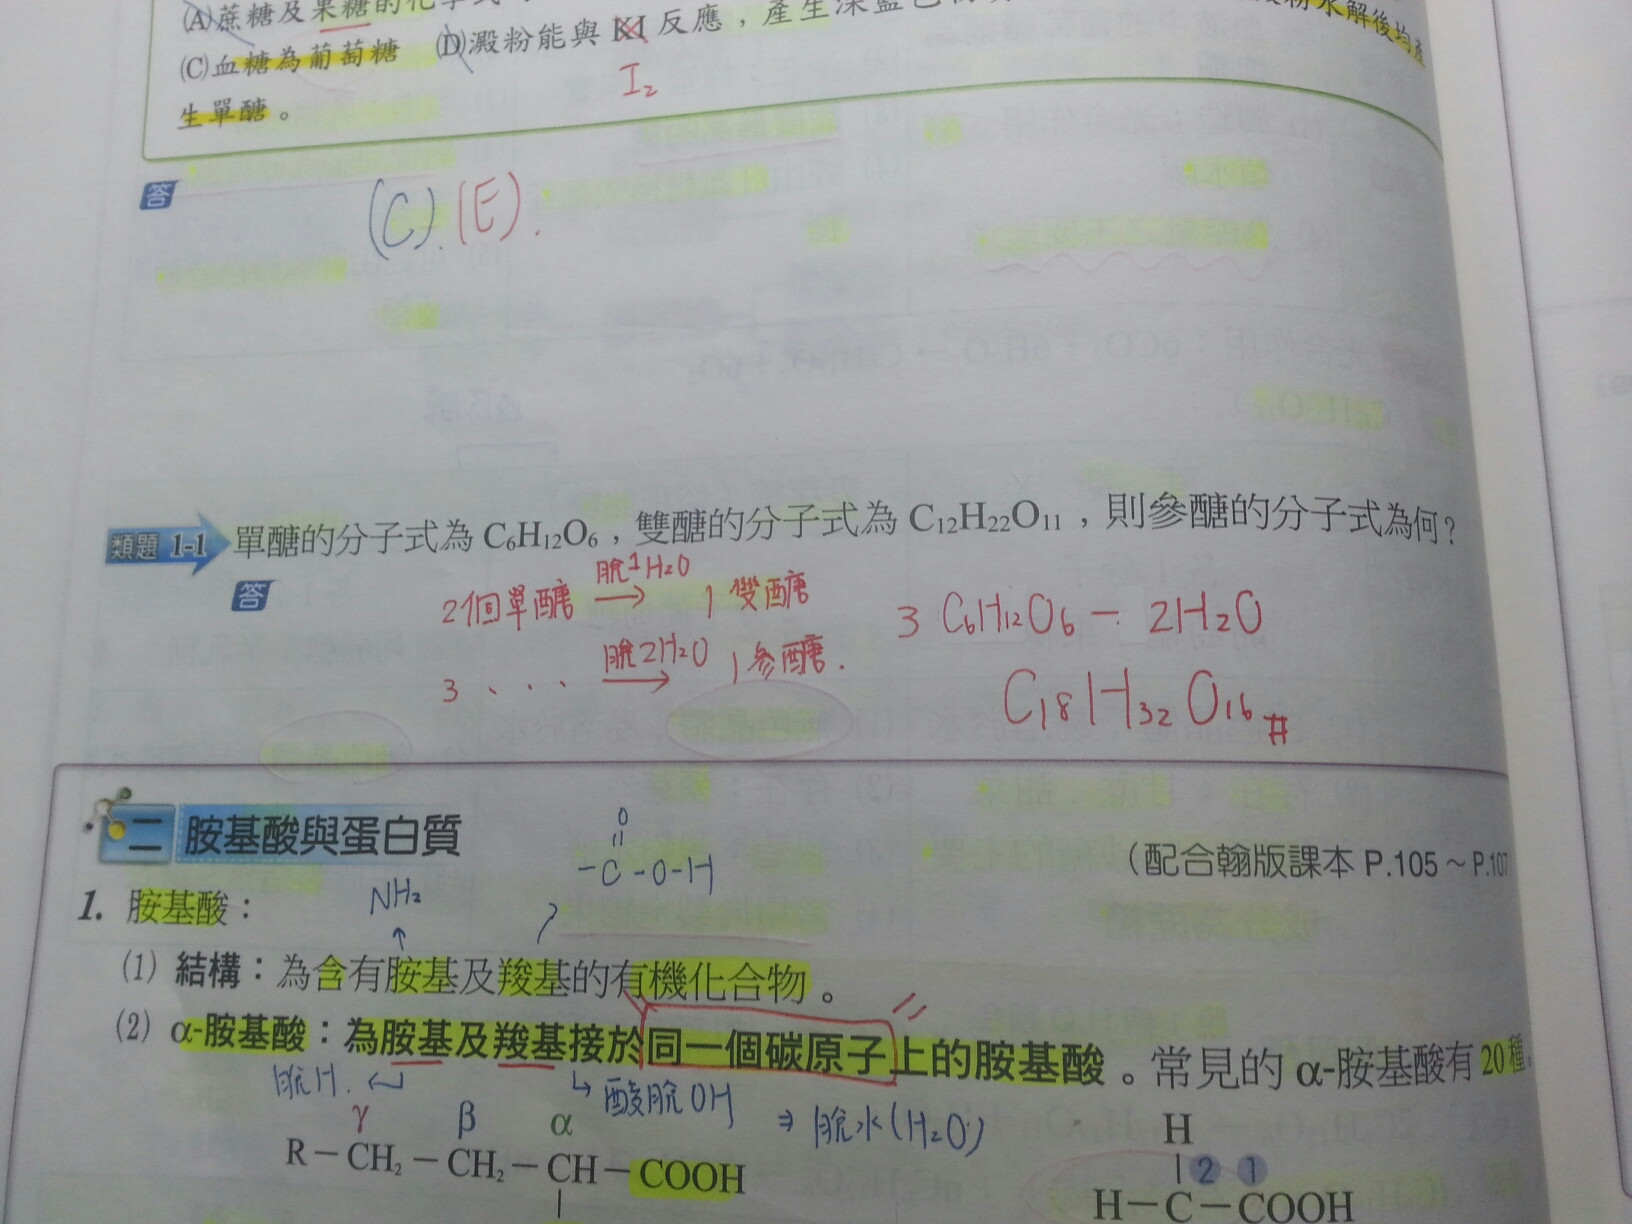 (A)蔗糖及果糖的化學式
水解後均產
(C)血糖為葡萄糖 (D)澱粉能與KI反應，產生深藍色
I₂
生單醣。
答
(C).(E).
類題 1-1 單醣的分子式為 C₆H₁₂O₆，雙醣的分子式為 C₁₂H₂₂O₁₁，則參醣的分子式為何？
答
2個單醣 脫1H₂O → 1雙醣
3、、、 脫2H₂O → 1參醣.
3 C₆H₁₂O₆ － 2H₂O
C₁₈H₃₂O₁₆ #
二 胺基酸與蛋白質
(配合翰版課本 P.105～P.107
O
=
-C-O-H
NH₂
1. 胺基酸：
(1) 結構：為含有胺基及羧基的有機化合物。
(2) α-胺基酸：為胺基及羧基接於同一個碳原子上的胺基酸。常見的 α-胺基酸有 20 種。
脫H. 酸脫OH ⇒ 脫水(H₂O)
γ β α
R－CH₂－CH₂－CH－COOH
H
2 1
H－C－COOH